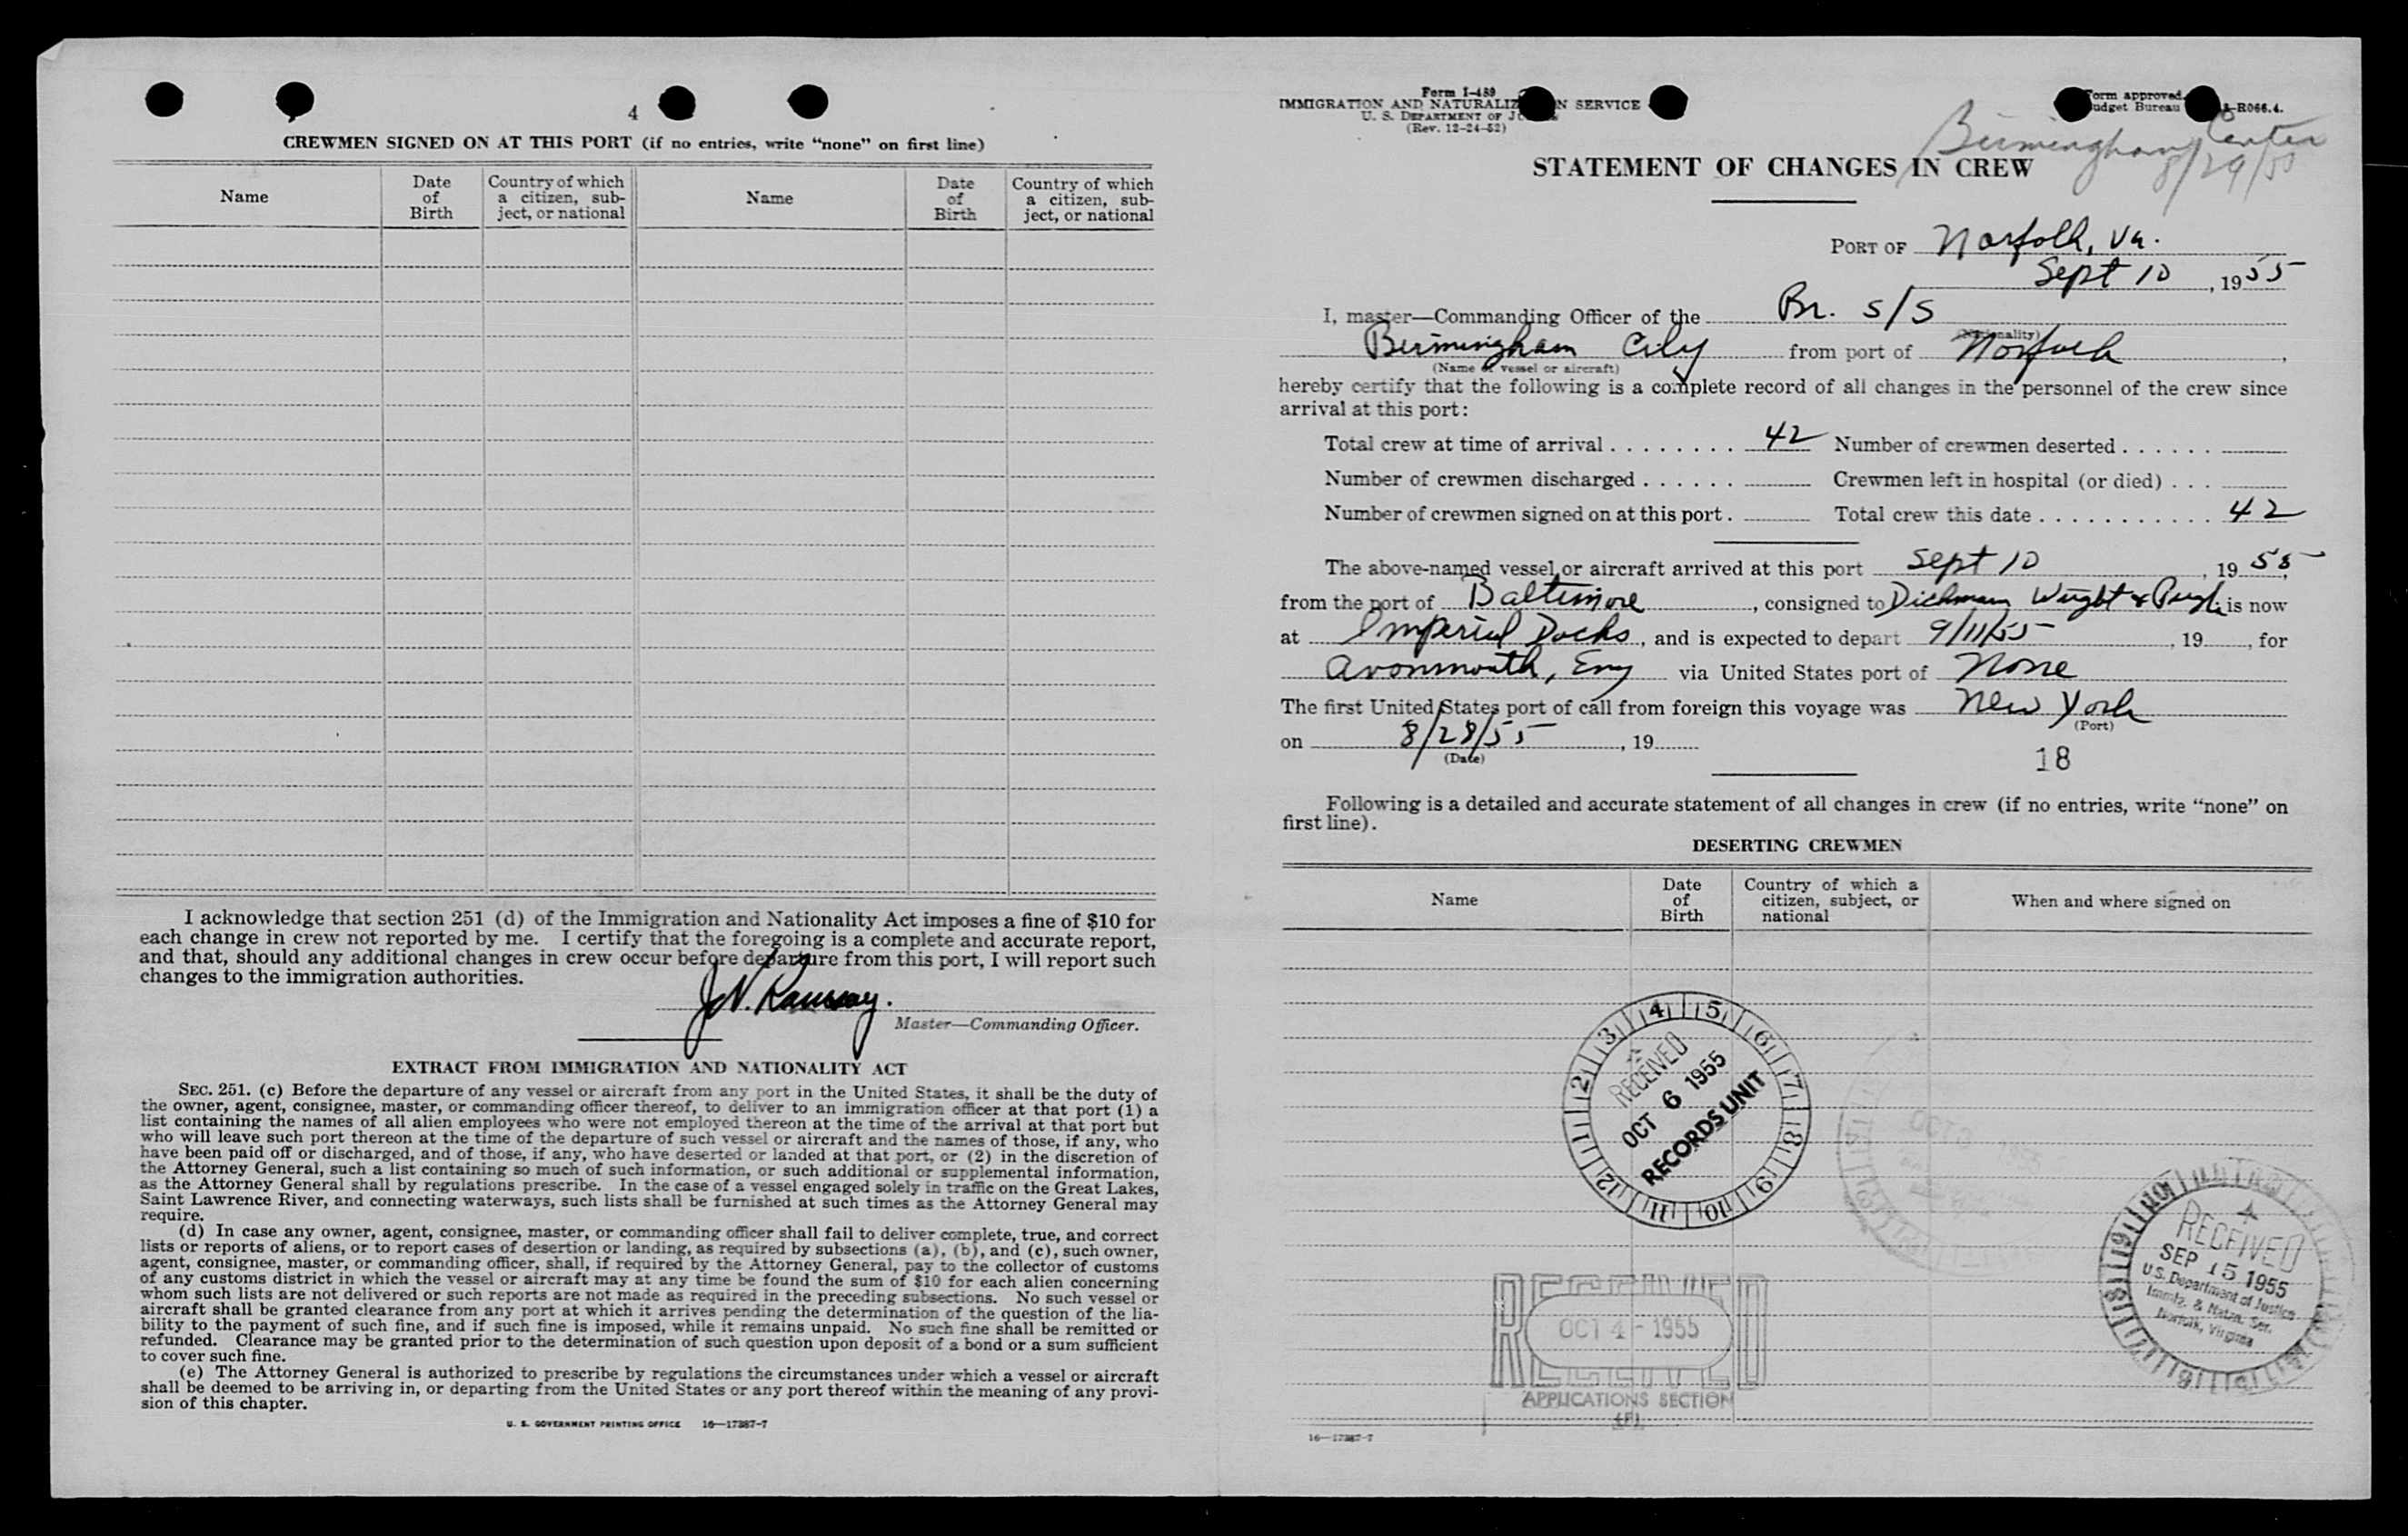 4
CREWMEN SIGNED ON AT THIS PORT (if no entries, write "none" on first line)
Name
Date of Birth
Country of which a citizen, sub-
ject, or national
Name
Date of Birth
Country of which a citizen, sub-
ject, or national
I acknowledge that section 251 (d) of the Immigration and Nationality Act imposes a fine of $10 for
each change in crew not reported by me. I certify that the foregoing is a complete and accurate report,
and that, should any additional changes in crew occur before departure from this port, I will report such
changes to the immigration authorities.
J.V. Ramsay.
Master—Commanding Officer.
EXTRACT FROM IMMIGRATION AND NATIONALITY ACT
SEC. 251. (c) Before the departure of any vessel or aircraft from any port in the United States, it shall be the duty of
the owner, agent, consignee, master, or commanding officer thereof, to deliver to an immigration officer at that port (1) a
list containing the names of all alien employees who were not employed thereon at the time of the arrival at that port but
who will leave such port thereon at the time of the departure of such vessel or aircraft and the names of those, if any, who
have been paid off or discharged, and of those, if any, who have deserted or landed at that port, or (2) in the discretion of
the Attorney General, such a list containing so much of such information, or such additional or supplemental information,
as the Attorney General shall by regulations prescribe. In the case of a vessel engaged solely in traffic on the Great Lakes,
Saint Lawrence River, and connecting waterways, such lists shall be furnished at such times as the Attorney General may
require.
(d) In case any owner, agent, consignee, master, or commanding officer shall fail to deliver complete, true, and correct
lists or reports of aliens, or to report cases of desertion or landing, as required by subsections (a), (b), and (c), such owner,
agent, consignee, master, or commanding officer, shall, if required by the Attorney General, pay to the collector of customs
of any customs district in which the vessel or aircraft may at any time be found the sum of $10 for each alien concerning
whom such lists are not delivered or such reports are not made as required in the preceding subsections. No such vessel or
aircraft shall be granted clearance from any port at which it arrives pending the determination of the question of the lia-
bility to the payment of such fine, and if such fine is imposed, while it remains unpaid. No such fine shall be remitted or
refunded. Clearance may be granted prior to the determination of such question upon deposit of a bond or a sum sufficient
to cover such fine.
(e) The Attorney General is authorized to prescribe by regulations the circumstances under which a vessel or aircraft
shall be deemed to be arriving in, or departing from the United States or any port thereof within the meaning of any provi-
sion of this chapter.
U. S. GOVERNMENT PRINTING OFFICE 16—17387-7
Form I-489
IMMIGRATION AND NATURALIZ N SERVICE
U. S. DEPARTMENT OF
(Rev. 12-24-52)
Form approved.
Budget Bureau -R066.4.
Birmingham
8/29/55
STATEMENT OF CHANGES IN CREW
PORT OF Norfolk, Va.
Sept 10, 1955
I, master—Commanding Officer of the Br. S/S
(Nationality)
Birmingham City from port of Norfolk,
(Name of vessel or aircraft)
hereby certify that the following is a complete record of all changes in the personnel of the crew since
arrival at this port:
Total crew at time of arrival 42 Number of crewmen deserted
Number of crewmen discharged Crewmen left in hospital (or died)
Number of crewmen signed on at this port. Total crew this date 42
The above-named vessel or aircraft arrived at this port Sept 10, 1955
from the port of Baltimore, consigned to Dichmann Wright & Pugh is now
at Imperial Docks, and is expected to depart 9/11/55, 19, for
Avonmouth, Eng via United States port of None
The first United States port of call from foreign this voyage was New York
(Port)
on 8/28/55, 19
(Date)
18
Following is a detailed and accurate statement of all changes in crew (if no entries, write "none" on
first line).
DESERTING CREWMEN
Name
Date of Birth
Country of which a citizen, subject, or national
When and where signed on
RECEIVED
OCT 6 1955
RECORDS UNIT
RECEIVED
OCT 4 - 1955
APPLICATIONS SECTION
RECEIVED
SEP 15 1955
U.S. Department of Justice
Immig. & Natzn. Ser.
Norfolk, Virginia
16—17387-7